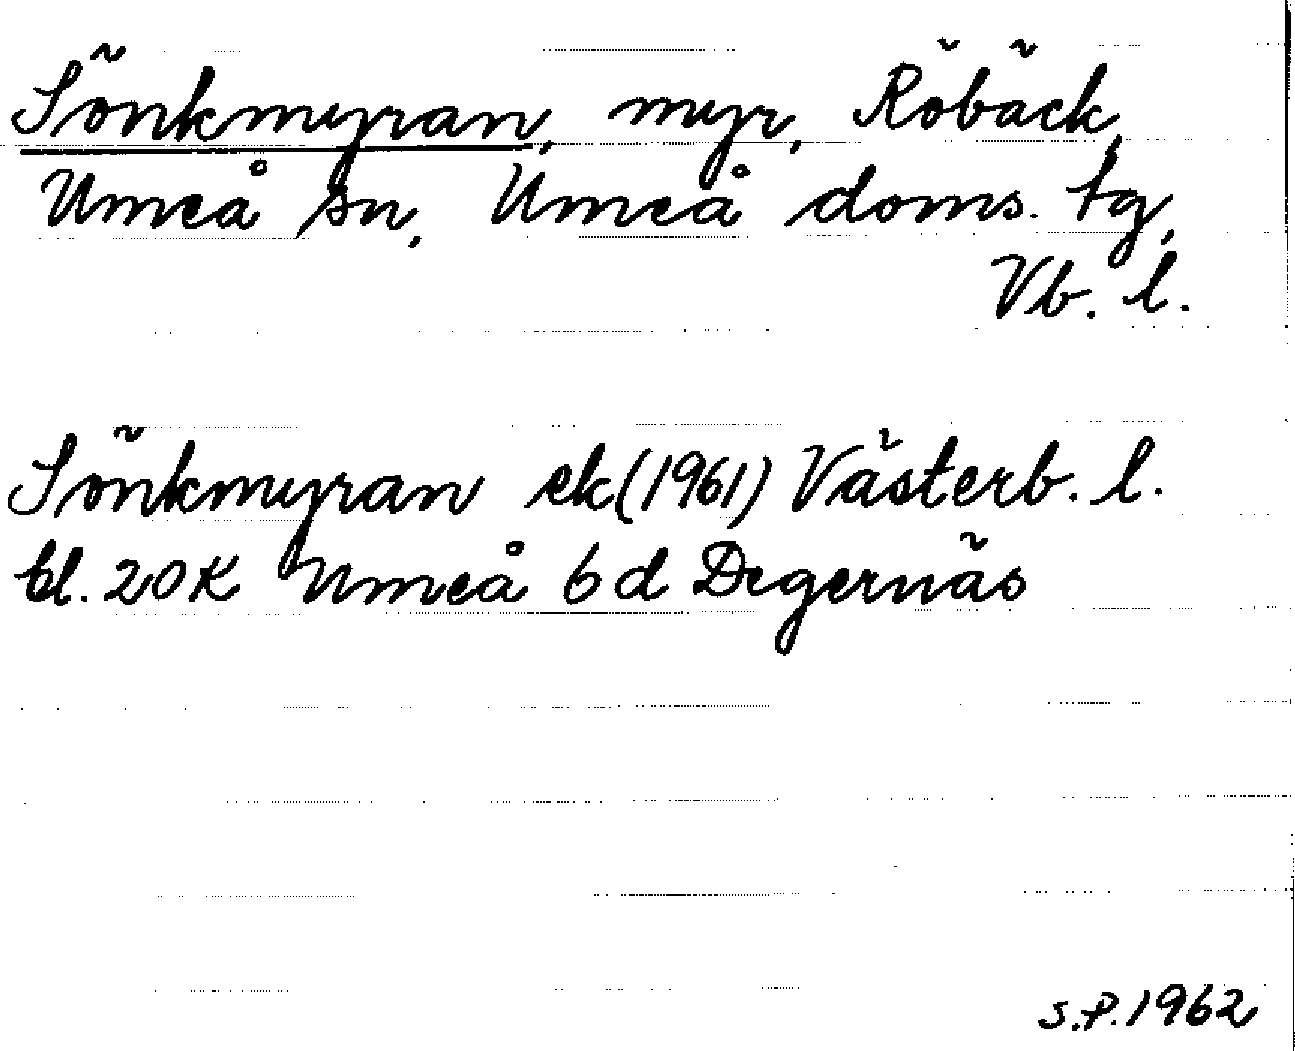 Sönkmyran, myr, Röbäck,
Umeå sn, Umeå doms. tg,
Vb. l.
Sönkmyran ek (1961) Västerb. l.
bl. 20K Umeå 6d Degernäs
S.P. 1962